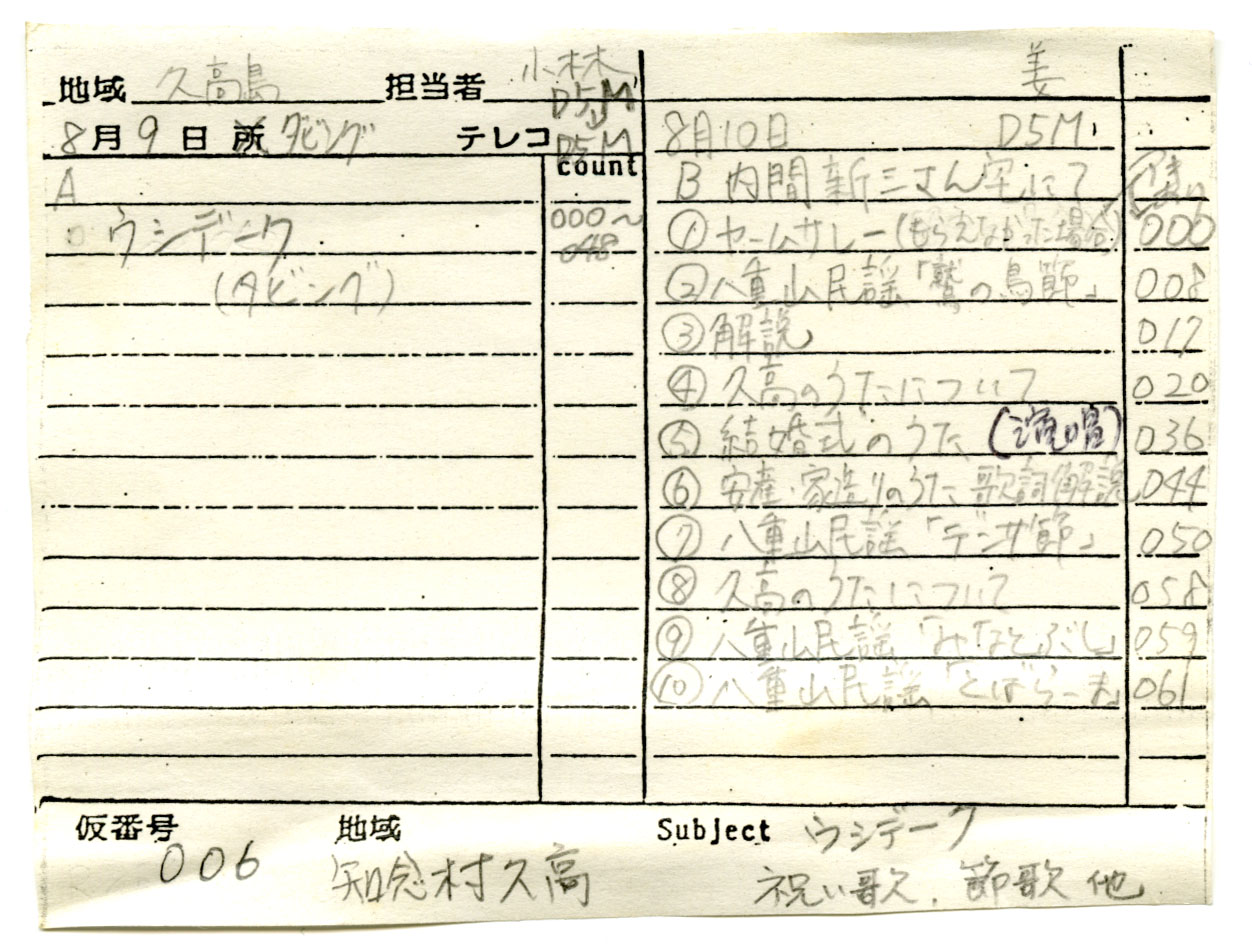 地域 久高島 担当者 小林 姜
D5M
8月9日 所 ダビング テレコ D5M 8月10日 D5M
count
A B 内間新三さん宅にて
ウシデーク 000〜048 ① ヤームサレー(もらえなかった場合) 000
(ダビング) ② 八重山民謡「鷲の鳥節」 008
③ 解説 017
④ 久高のうたについて 020
⑤ 結婚式のうた (演唱) 036
⑥ 安産・家造りのうた 歌詞解説 044
⑦ 八重山民謡「デンサ節」 050
⑧ 久高のうたについて 058
⑨ 八重山民謡「みなとぶし」 059
⑩ 八重山民謡「とばらーま」 061
仮番号 地域 Subject ウシデーク
006 知念村久高 祝い歌、節歌 他